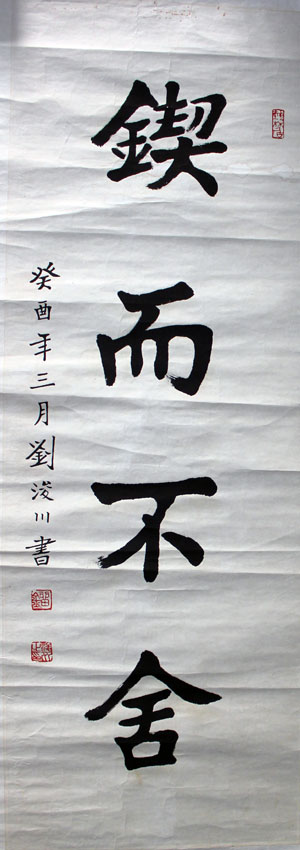 鍥而不舍
癸酉年三月劉浚川書